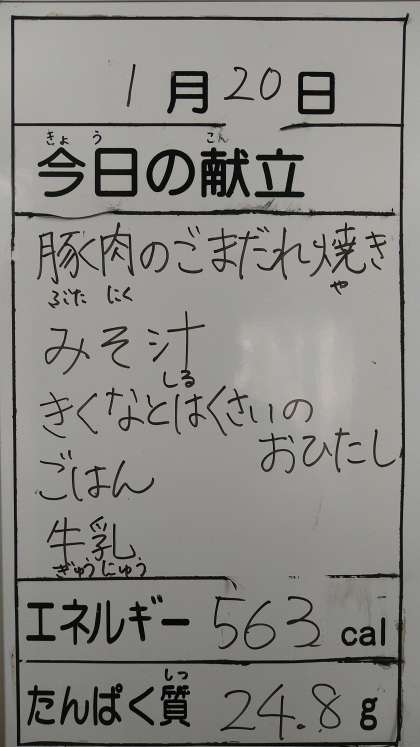 1月20日
きょう こん
今日の献立
豚く肉のごまだれ焼き
ぶた にく や
みそ汁
しる
きくなとはくさいの
おひたし
ごはん
牛乳
ぎゅうにゅう
エネルギー 563 cal
しつ
たんぱく質 24.8 g